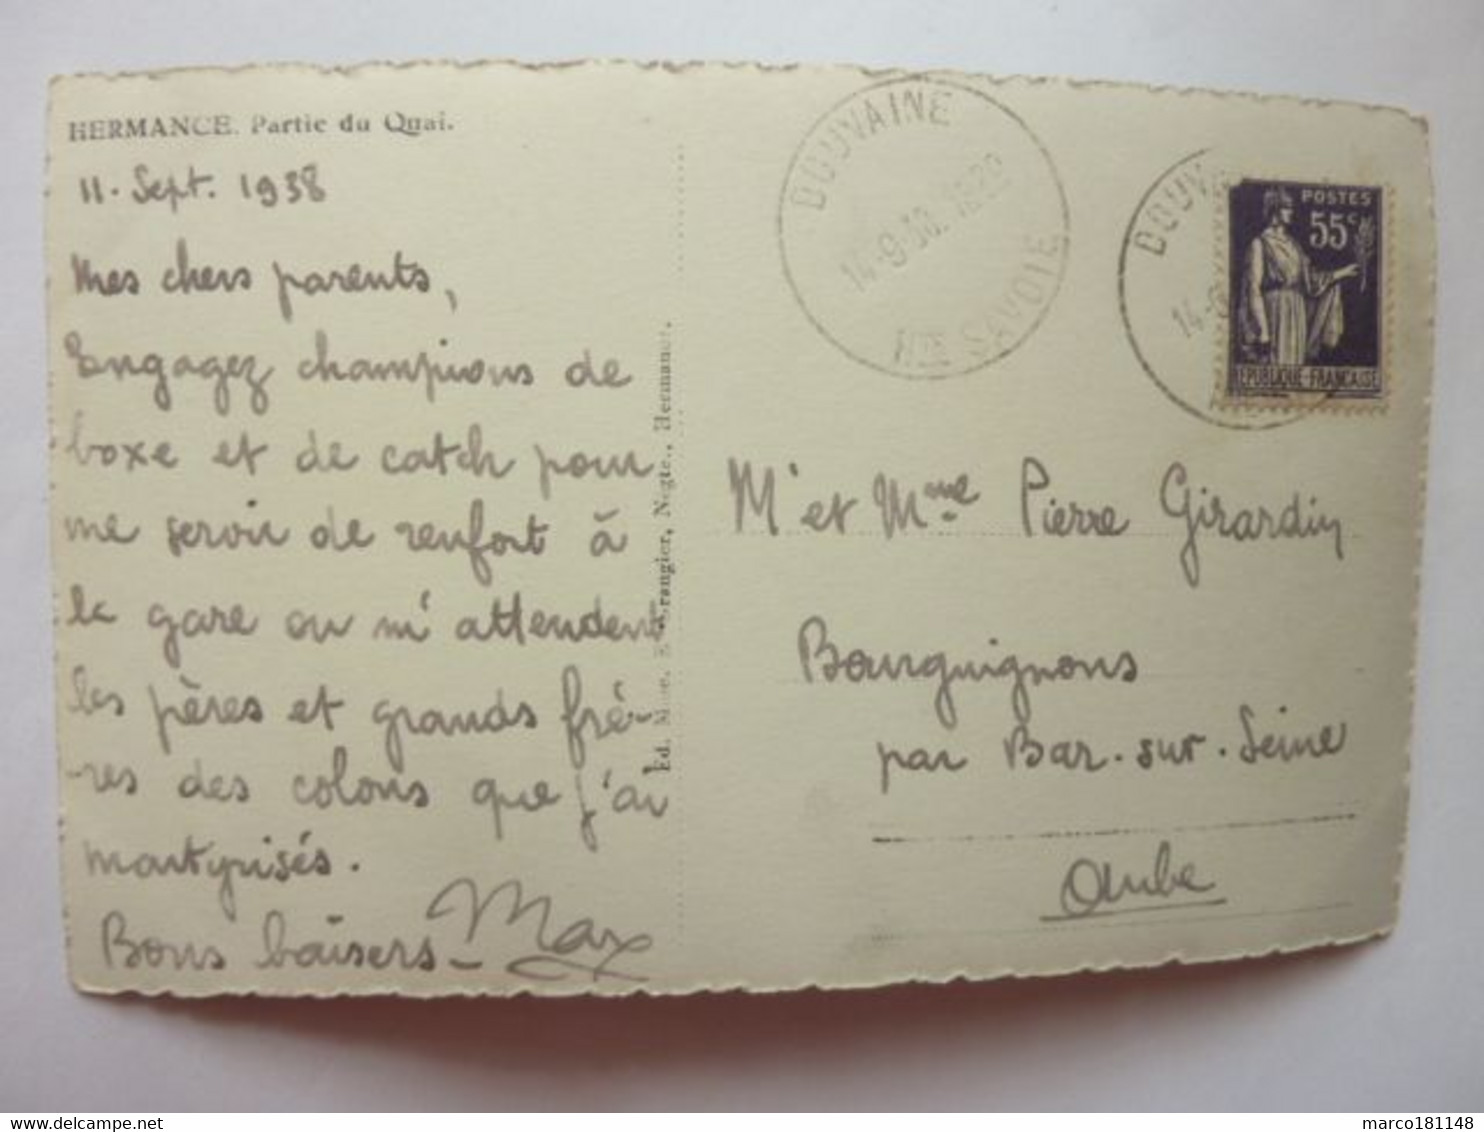 HERMANCE. Partie du Quai.
11. Sept. 1938
Mes chers parents,
Engagez champions de
boxe et de catch pour
me servir de renfort à
la gare ou m'attendent
les pères et grands frè-
-res des colons que j'ai
martyrisés.
Bons baisers - Max
Négte., Hermance.
DOUVAINE
14-9-38.
Hte SAVOIE
DOUVA
14-9
POSTES
55c
REPUBLIQUE-FRANCAISE
Mr et Mme Pierre Girardin
Bourguignons
par Bar-sur-Seine
Aube
delcampe.net
marco181148